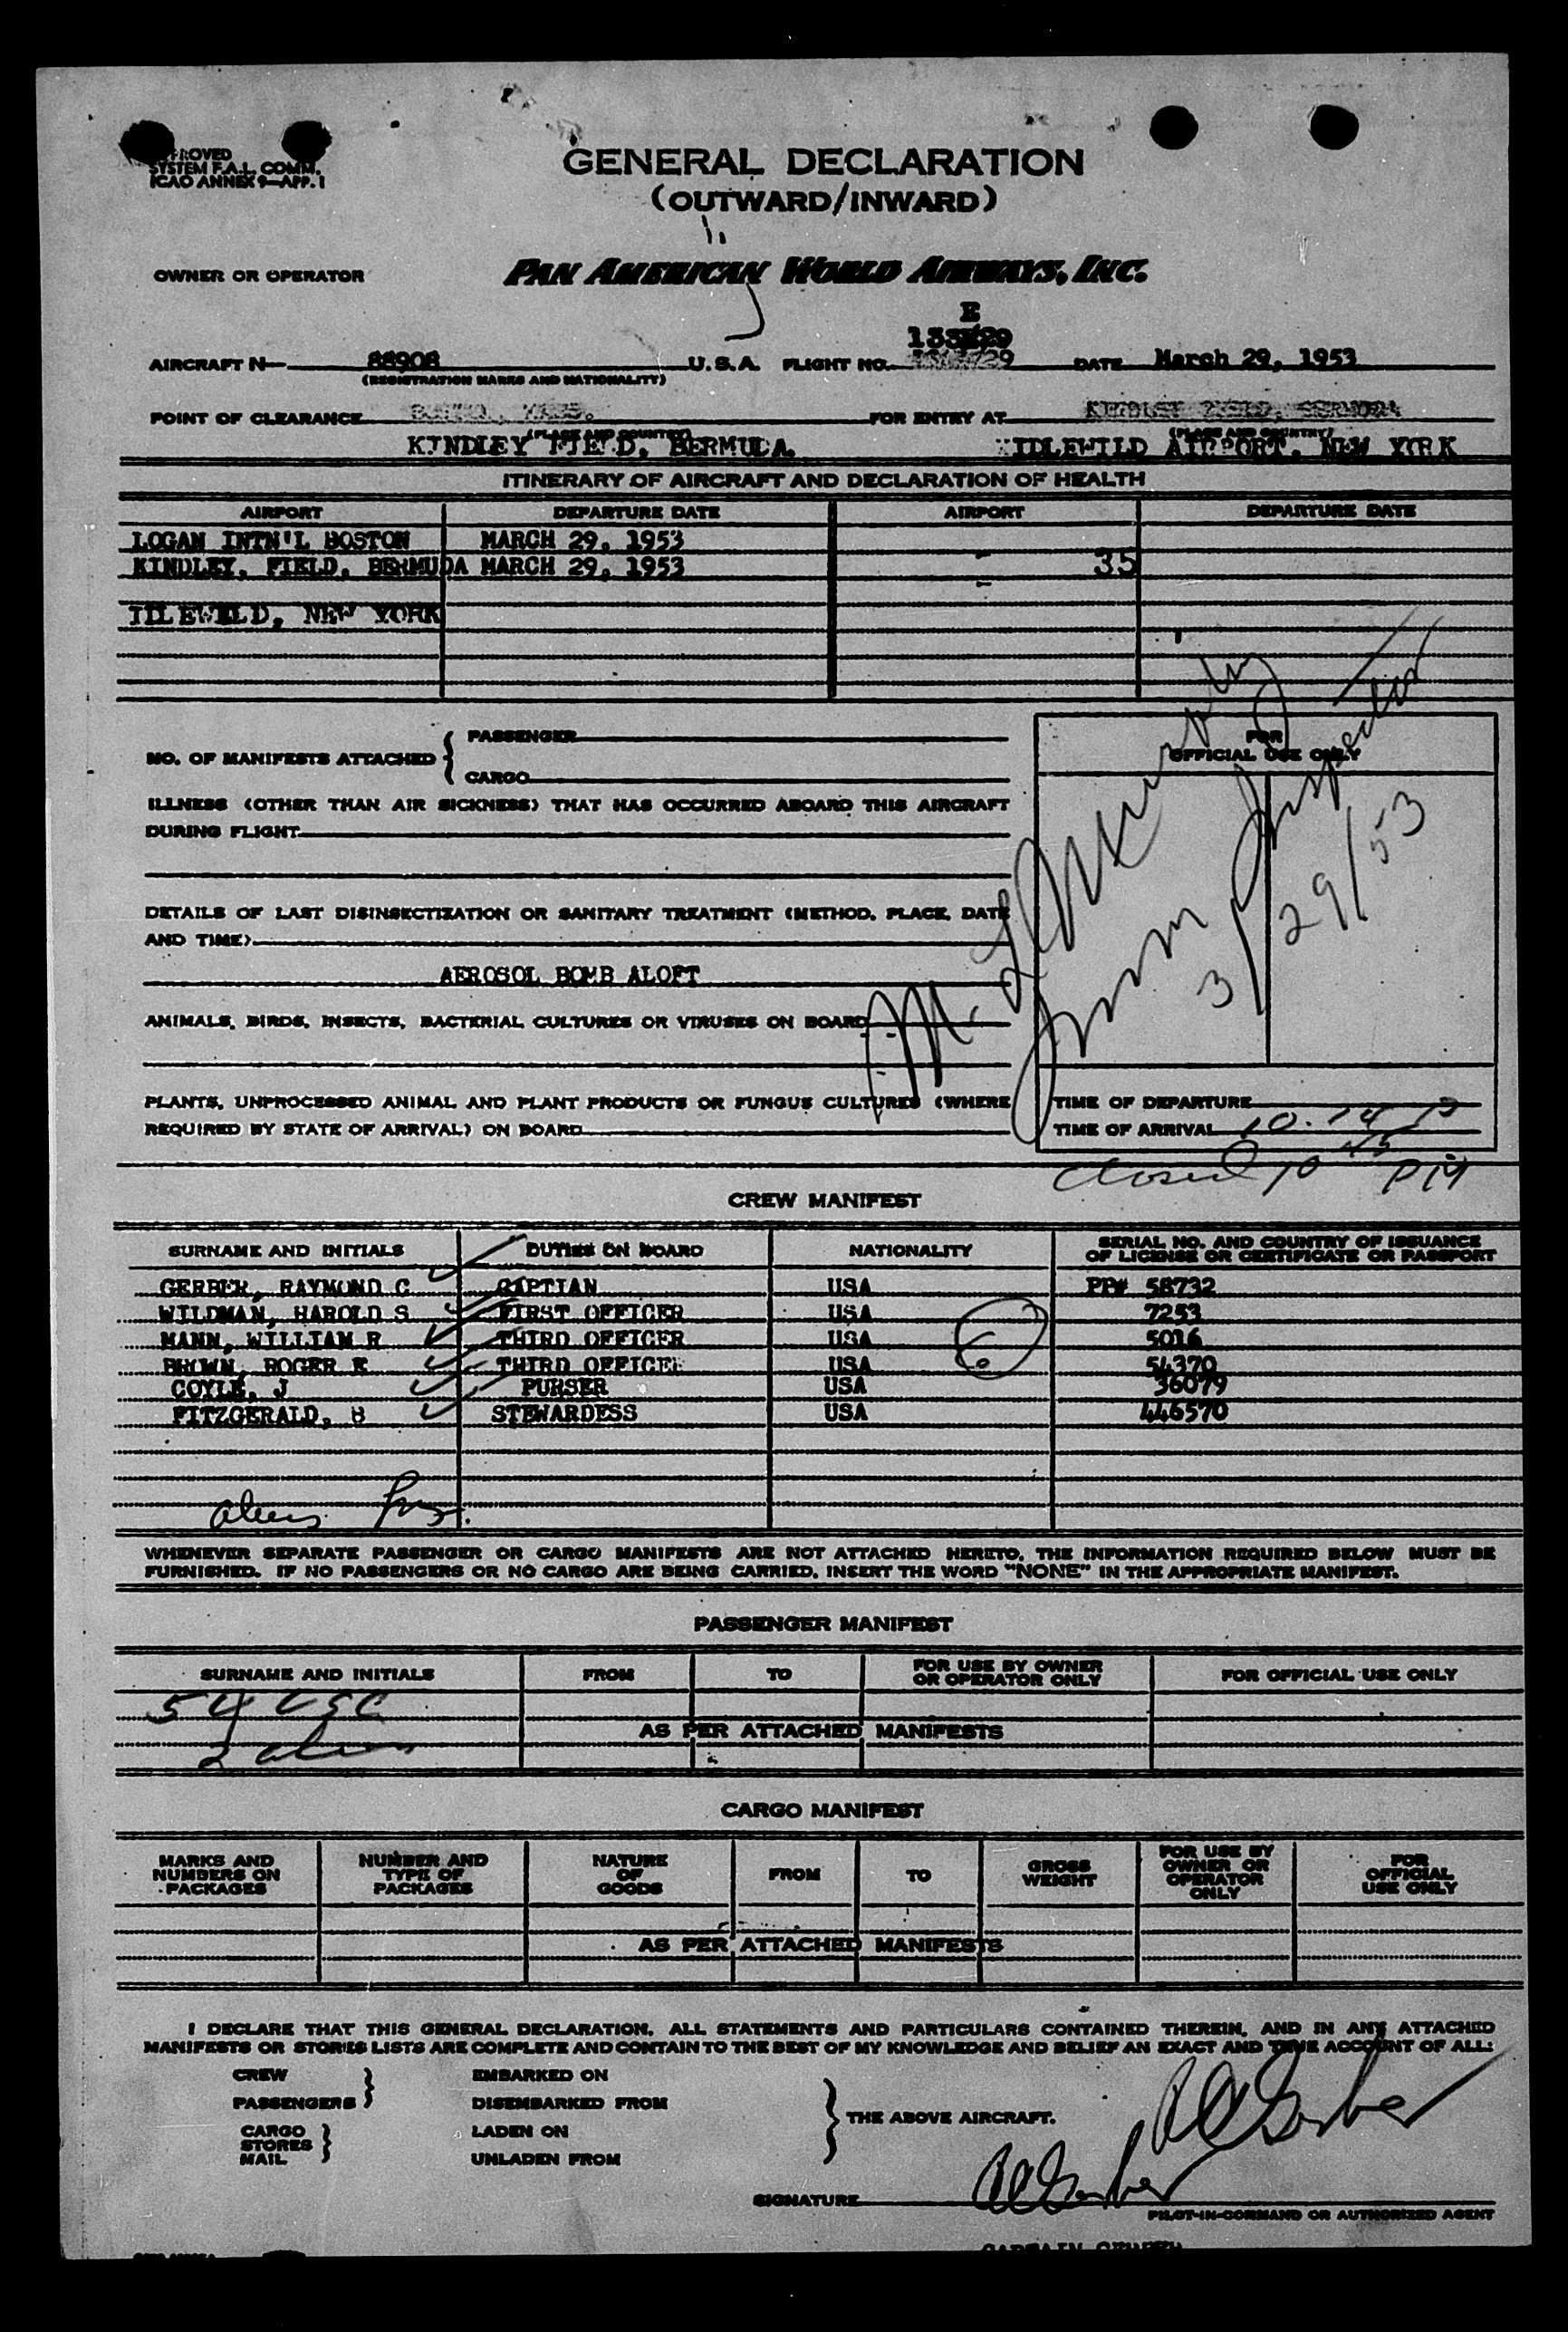 SYSTEM F.A.L. COMM.
ICAO ANNEX 9—APP. 1
GENERAL DECLARATION
(OUTWARD/INWARD)
OWNER OR OPERATOR PAN AMERICAN WORLD AIRWAYS, INC.
E
AIRCRAFT N— 88908 U.S.A. FLIGHT NO. DATE March 29, 1953
(REGISTRATION MARKS AND NATIONALITY)
POINT OF CLEARANCE FOR ENTRY AT KINDLEY FIELD, BERMUDA
(PLACE AND COUNTRY) (PLACE AND COUNTRY)
KINDLEY FIELD, BERMUDA. IDLEWILD AIRPORT, NEW YORK
ITINERARY OF AIRCRAFT AND DECLARATION OF HEALTH
AIRPORT DEPARTURE DATE AIRPORT DEPARTURE DATE
LOGAN INTN'L BOSTON MARCH 29, 1953
KINDLEY, FIELD, BERMUDA MARCH 29, 1953 35
IDLEWELD, NEW YORK
NO. OF MANIFESTS ATTACHED { PASSENGER
CARGO
FOR
OFFICIAL USE ONLY
ILLNESS (OTHER THAN AIR SICKNESS) THAT HAS OCCURRED ABOARD THIS AIRCRAFT
DURING FLIGHT
DETAILS OF LAST DISINSECTIZATION OR SANITARY TREATMENT (METHOD, PLACE, DATE
AND TIME)
AEROSOL BOMB ALOFT
Imm Inspector
3/29/53
ANIMALS, BIRDS, INSECTS, BACTERIAL CULTURES OR VIRUSES ON BOARD
PLANTS, UNPROCESSED ANIMAL AND PLANT PRODUCTS OR FUNGUS CULTURES (WHERE
REQUIRED BY STATE OF ARRIVAL) ON BOARD
TIME OF DEPARTURE
TIME OF ARRIVAL 10.14 P
Closed 10 45 PM
CREW MANIFEST
SURNAME AND INITIALS DUTIES ON BOARD NATIONALITY SERIAL NO. AND COUNTRY OF ISSUANCE
OF LICENSE OR CERTIFICATE OR PASSPORT
GERBER, RAYMOND C CAPTIAN USA PP# 58732
WILDMAN, HAROLD S FIRST OFFICER USA 7253
MANN, WILLIAM R THIRD OFFICER USA 5016
BROWN, ROGER E THIRD OFFICER USA 54370
COYLE, J PURSER USA 36079
FITZGERALD, B STEWARDESS USA 446570
6
WHENEVER SEPARATE PASSENGER OR CARGO MANIFESTS ARE NOT ATTACHED HERETO, THE INFORMATION REQUIRED BELOW MUST BE
FURNISHED. IF NO PASSENGERS OR NO CARGO ARE BEING CARRIED, INSERT THE WORD "NONE" IN THE APPROPRIATE MANIFEST.
PASSENGER MANIFEST
SURNAME AND INITIALS FROM TO FOR USE BY OWNER
OR OPERATOR ONLY FOR OFFICIAL USE ONLY
54 USC
AS PER ATTACHED MANIFESTS
2 alien
CARGO MANIFEST
MARKS AND
NUMBERS ON
PACKAGES
NUMBER AND
TYPE OF
PACKAGES
NATURE
OF
GOODS
FROM
TO
GROSS
WEIGHT
FOR USE BY
OWNER OR
OPERATOR
ONLY
FOR
OFFICIAL
USE ONLY
AS PER ATTACHED MANIFESTS
I DECLARE THAT THIS GENERAL DECLARATION, ALL STATEMENTS AND PARTICULARS CONTAINED THEREIN, AND IN ANY ATTACHED
MANIFESTS OR STORES LISTS ARE COMPLETE AND CONTAIN TO THE BEST OF MY KNOWLEDGE AND BELIEF AN EXACT AND TRUE ACCOUNT OF ALL:
CREW
PASSENGERS }
EMBARKED ON
DISEMBARKED FROM
CARGO
STORES
MAIL }
LADEN ON
UNLADEN FROM
} THE ABOVE AIRCRAFT.
RC Gerber
SIGNATURE RC Gerber
PILOT-IN-COMMAND OR AUTHORIZED AGENT
CAPTAIN GERBER